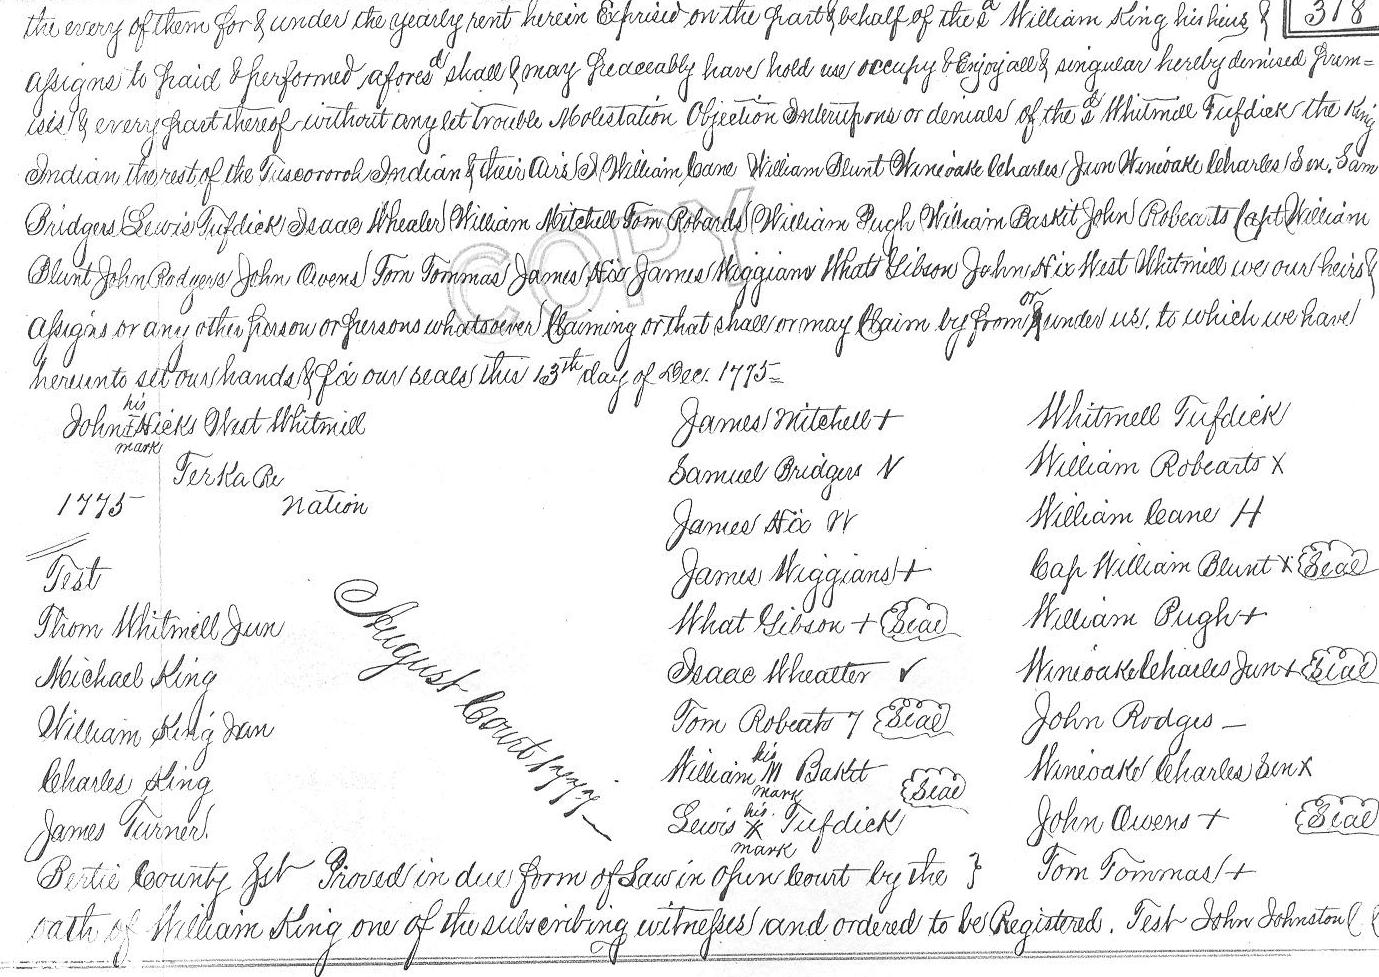 the every of them for & under the yearly rent herein Exprised on the part & behalf of the sd William King his heirs &
318
Assigns to paid & performed aforesd shall & may peaceably have hold use occupy & Enjoy all & singular hereby demised prem=
isis & every part thereof without any let trouble Molestation Objection Interupons or denials of the sd Whitmell Tufdick the King
Indian the rest of the Tuscororoh Indian & their Airs I William Cane William Blunt Wineoake Charles Jun Wineoake Charles Sen. Sam
Bridgers Lewis Tufdick Isaac Whealer William Mitchell Tom Robards William Pugh William Baskit John Robearts Capt William
Blunt John Rodgers John Owens Tom Tommas James Hix James Wiggians What Gibson John Hix West Whitmell we our heirs &
Assigns or any other person or persons whatsoever Claiming or that shall or may Claim by from or under us. to which we have
hereunto set our hands & fix our seals this 13th day of Dec. 1775=
COPY
John his mark Hicks West Whitmill
TerKa Re
1775 Nation
Test
Thom Whitmell Jun
Michael King
William King Jun
Charles King
James Turner.
August Court 1777
James Mitchell +
Samuel Bridgers V
James Hix W
James Wiggians +
What Gibson + Seal
Isaac Wheatter ✓
Tom Robeats 7 Seal
William his M mark Bakit Seal
Lewis his X mark Tufdick
Whitmell Tufdick
William Robearts X
William Cane H
Cap William Blunt X Seal
William Pugh +
Wineoake Charles Jun + Seal
John Rodgis –
Wineoake Charles Sen X
John Owens + Seal
Tom Tommas +
Bertie County Proved in due form of Law in open Court by the }
oath of William King one of the subscribing witnesses and ordered to be Registered. Test John Johnston C